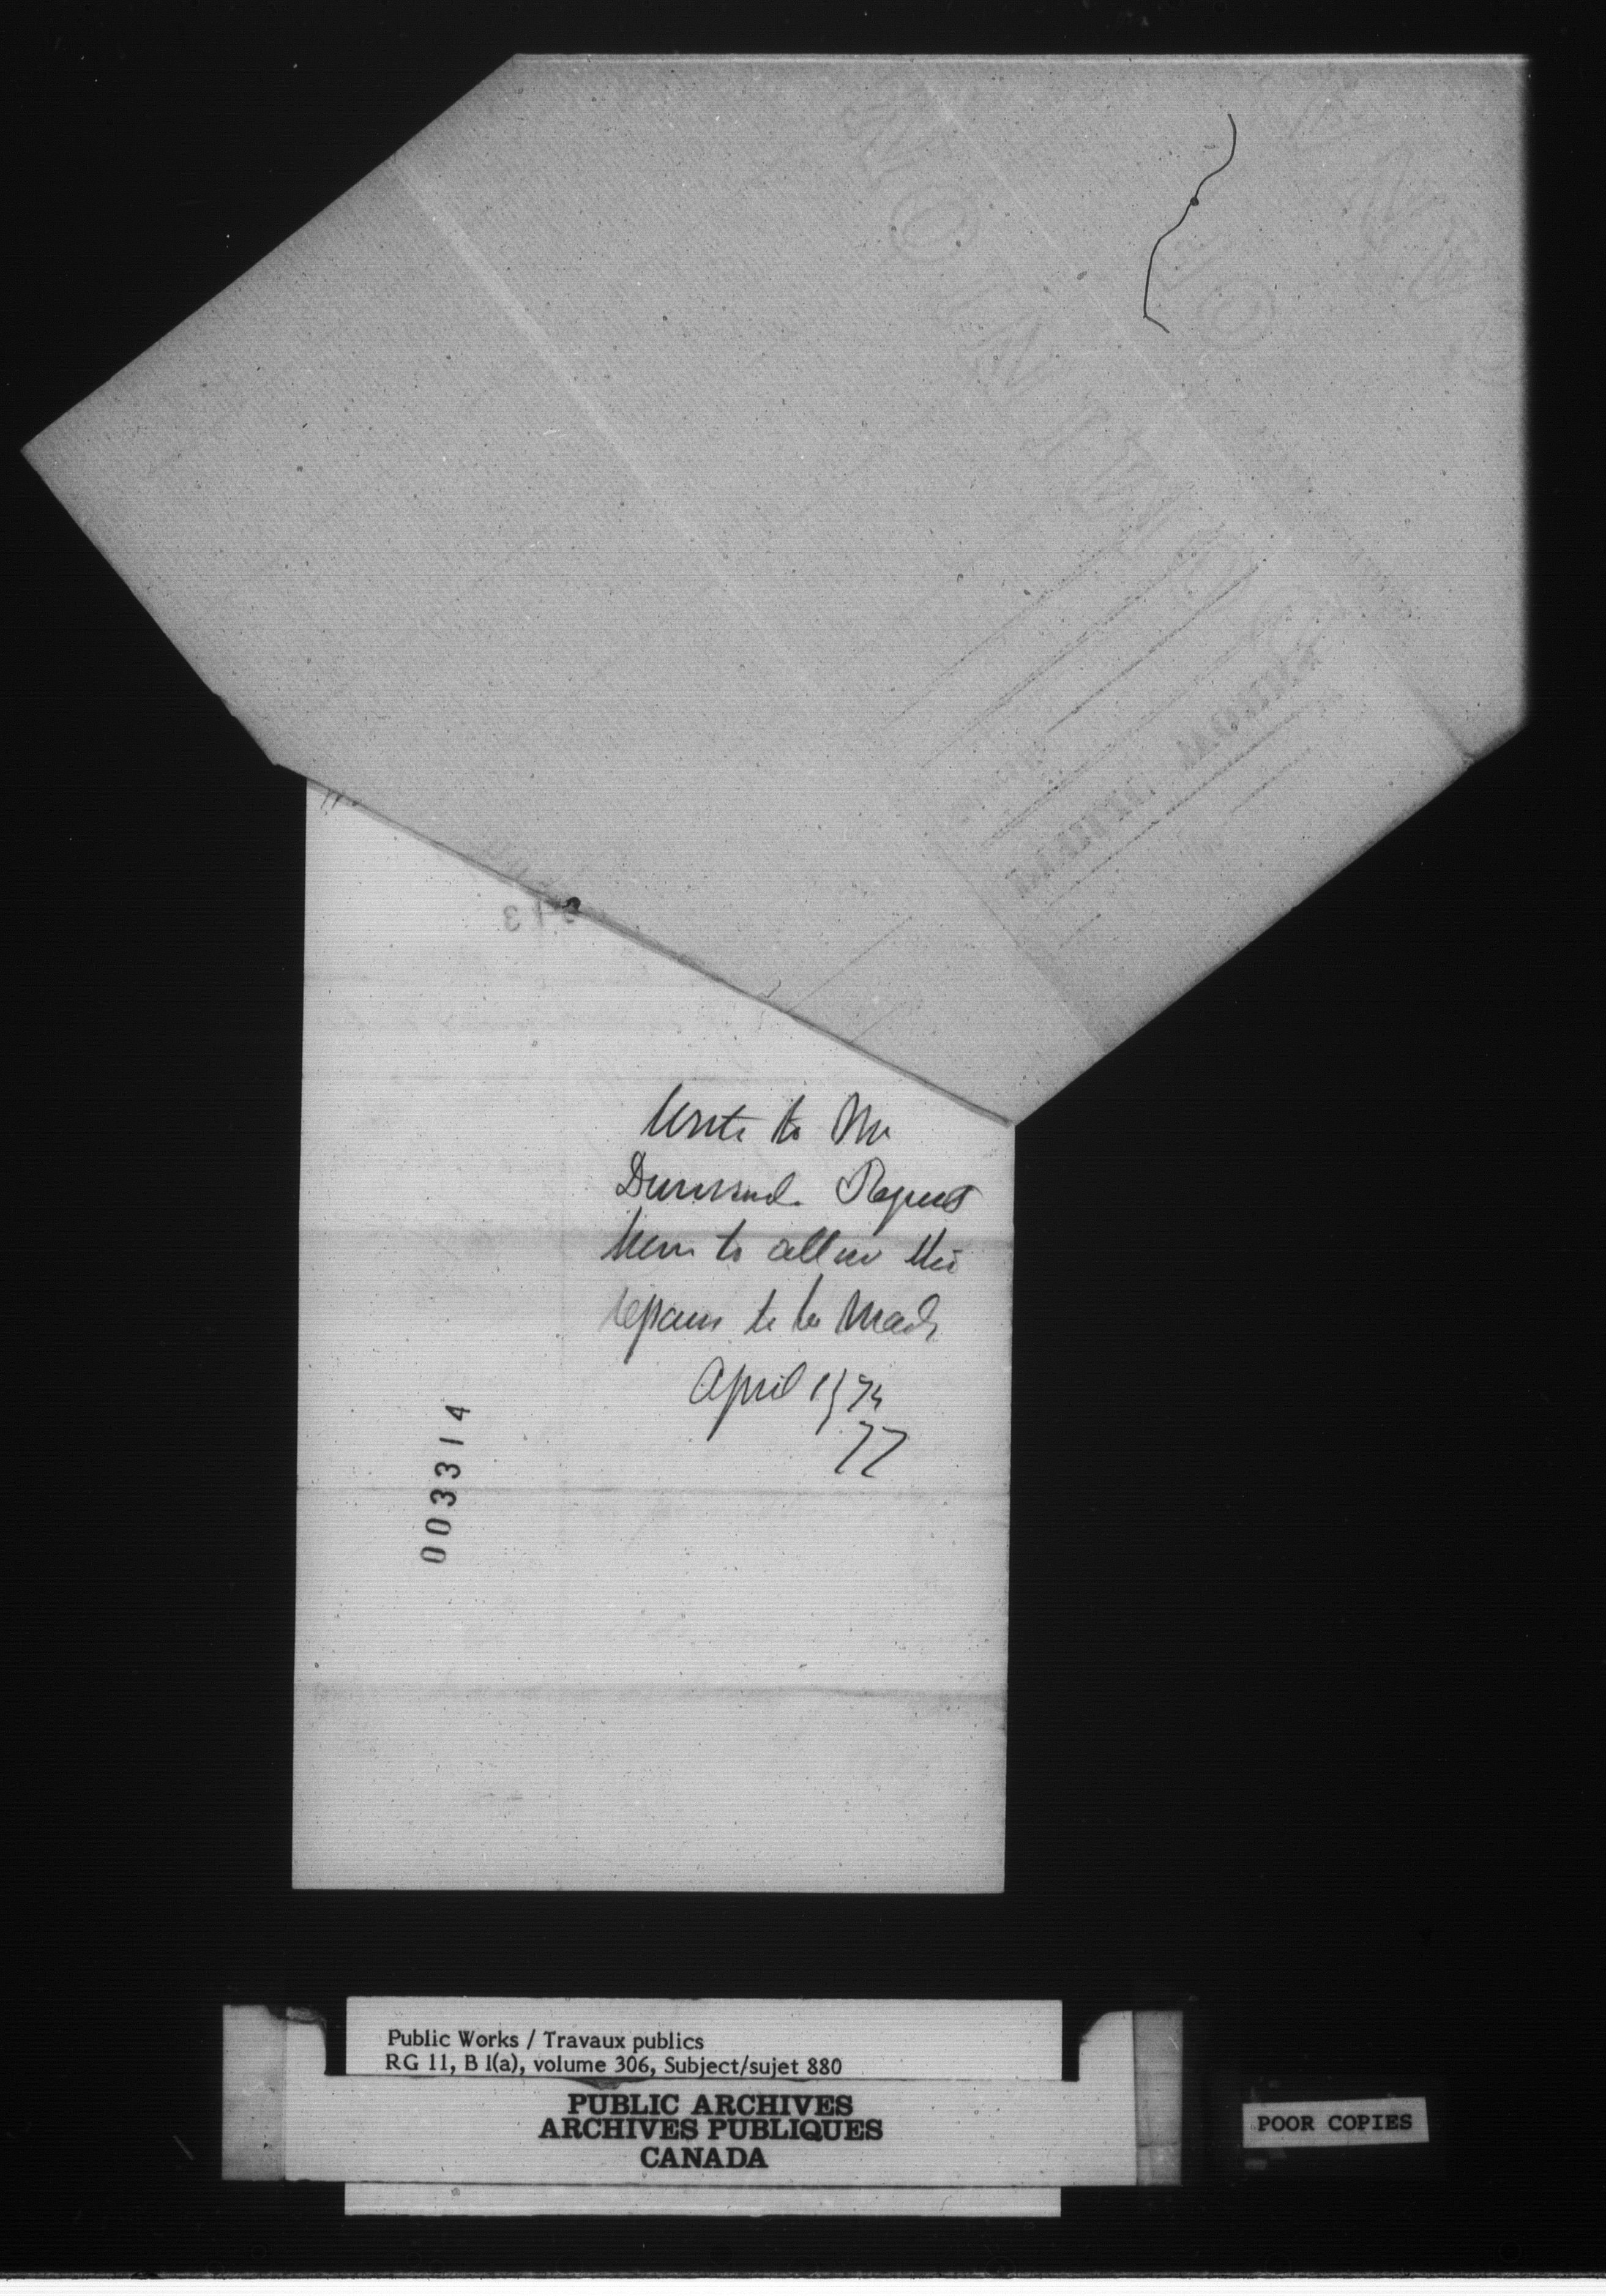 Write to Mr
Request
him to allow the
repairs to be made
April
77
003314
Public Works / Travaux publics
RG 11, B 1(a), volume 306, Subject/sujet 880
PUBLIC ARCHIVES
ARCHIVES PUBLIQUES
CANADA
POOR COPIES